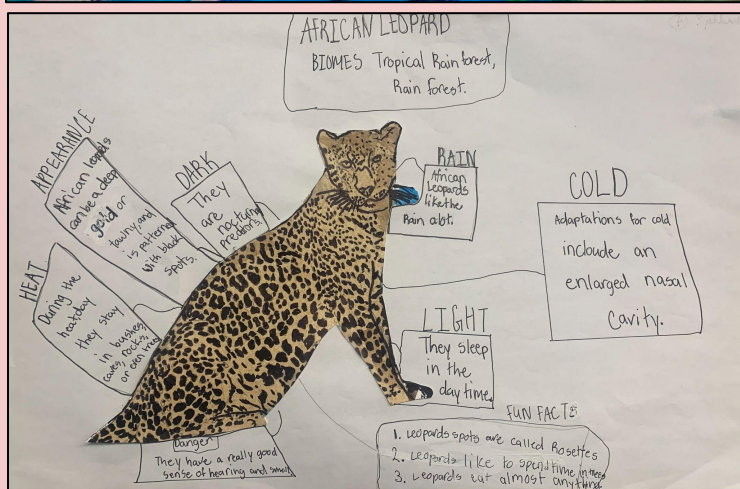 AFRICAN LEOPARD
BIOMES Tropical Rain forest,
Rain forest.
APPEARANCE
African lepords
can be a deep
gold or
tawny, and
is patterned
with black
spots.
DARK
They
are
nocturnal
predators.
RAIN
African
Leopards
like the
Rain a lot.
COLD
Adaptations for cold
incloude an
enlarged nasal
Cavity.
HEAT
During the
heat day
they stay
in bushes,
caves, rocks,
or even trees
LIGHT
They sleep
in the
day time.
Danger
They have a really good
sense of hearing and smell
FUN FACTS
1. Leopards spots are called Rosettes
2. Leopards like to spend time in trees
3. Leopards eat almost anything